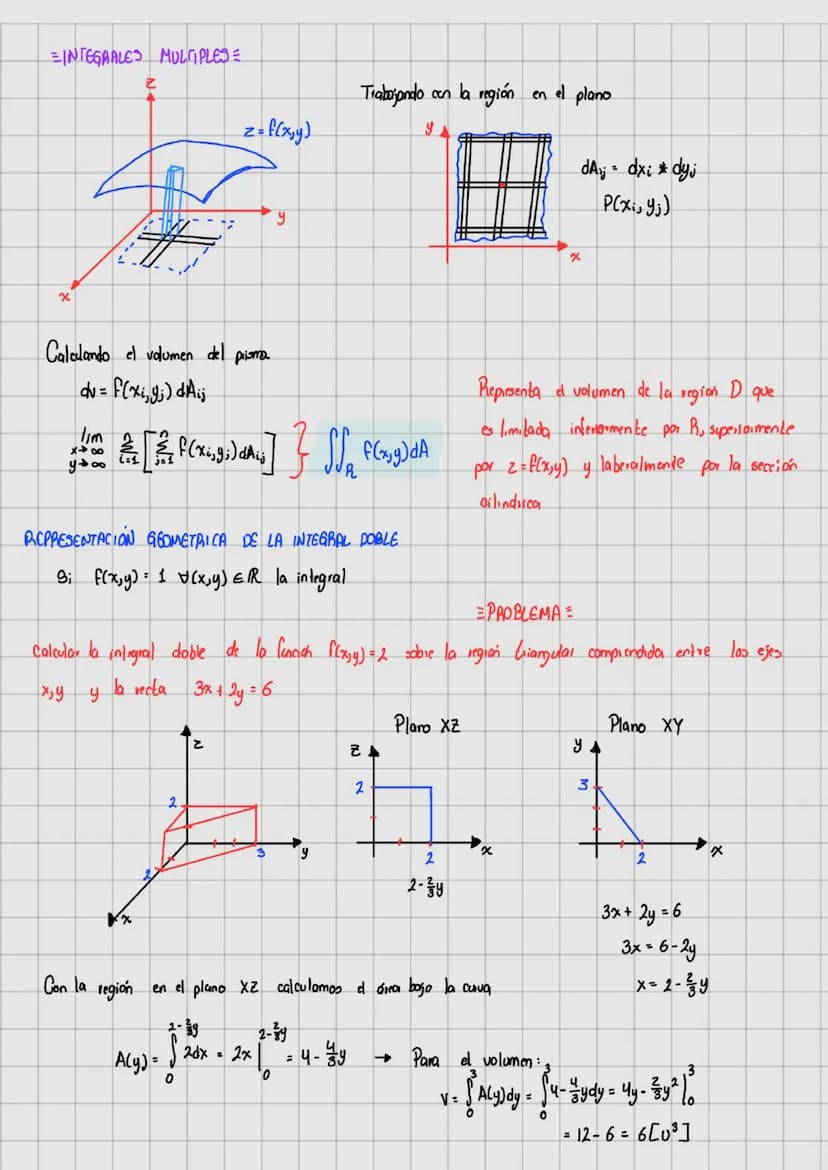 =INTEGRALES MULTIPLES=
z
z = f(x,y)
y
x
Trabajando con la región en el plano
y
x
dAij = dxi * dyj
P(xi, yj)
Calculando el volumen del prisma
dv = f(xi,yj) dAij
lim x→∞ y→∞ n Σ i=1 [ n Σ j=1 f(xi,yj) dAij ] } ∬R f(x,y)dA
Representa el volumen de la región D que
es limitada inferiormente por R, superiormente
por z=f(x,y) y lateralmente por la sección
cilindrica
REPRESENTACIÓN GEOMETRICA DE LA INTEGRAL DOBLE
Si f(x,y) = 1 ∀(x,y) ∈ R la integral
=PROBLEMA=
Calcular la integral doble de la función f(x,y)=2 sobre la region triangular comprendida entre los ejes
x,y y la recta 3x + 2y = 6
z
2
2
3
y
x
Plano XZ
z
2
2
x
2-⅔y
Plano XY
y
3
2
x
3x + 2y = 6
3x = 6 - 2y
x = 2 - ⅔y
Con la región en el plano XZ calculamos el área bajo la curva
A(y) = ∫₀^(2-⅔y) 2dx = 2x |₀^(2-⅔y) = 4 - 4/3 y → Para el volumen:
V = ∫₀³ A(y)dy = ∫₀³ 4 - 4/3 y dy = 4y - ⅔y² |₀³
= 12 - 6 = 6[u³]